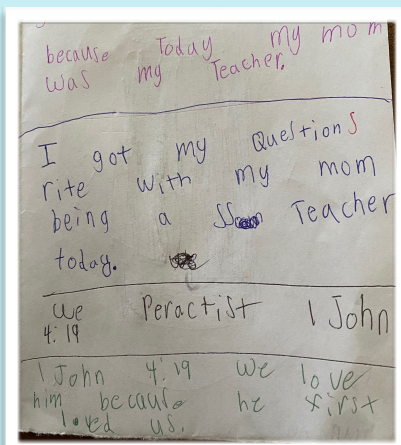 because Today my mom
was my Teacher.
I got my Questions
rite with my mom
being a SS Teacher
today.
we Peractist 1 John
4:19
1 John 4:19 we love
him because he first
loved us.